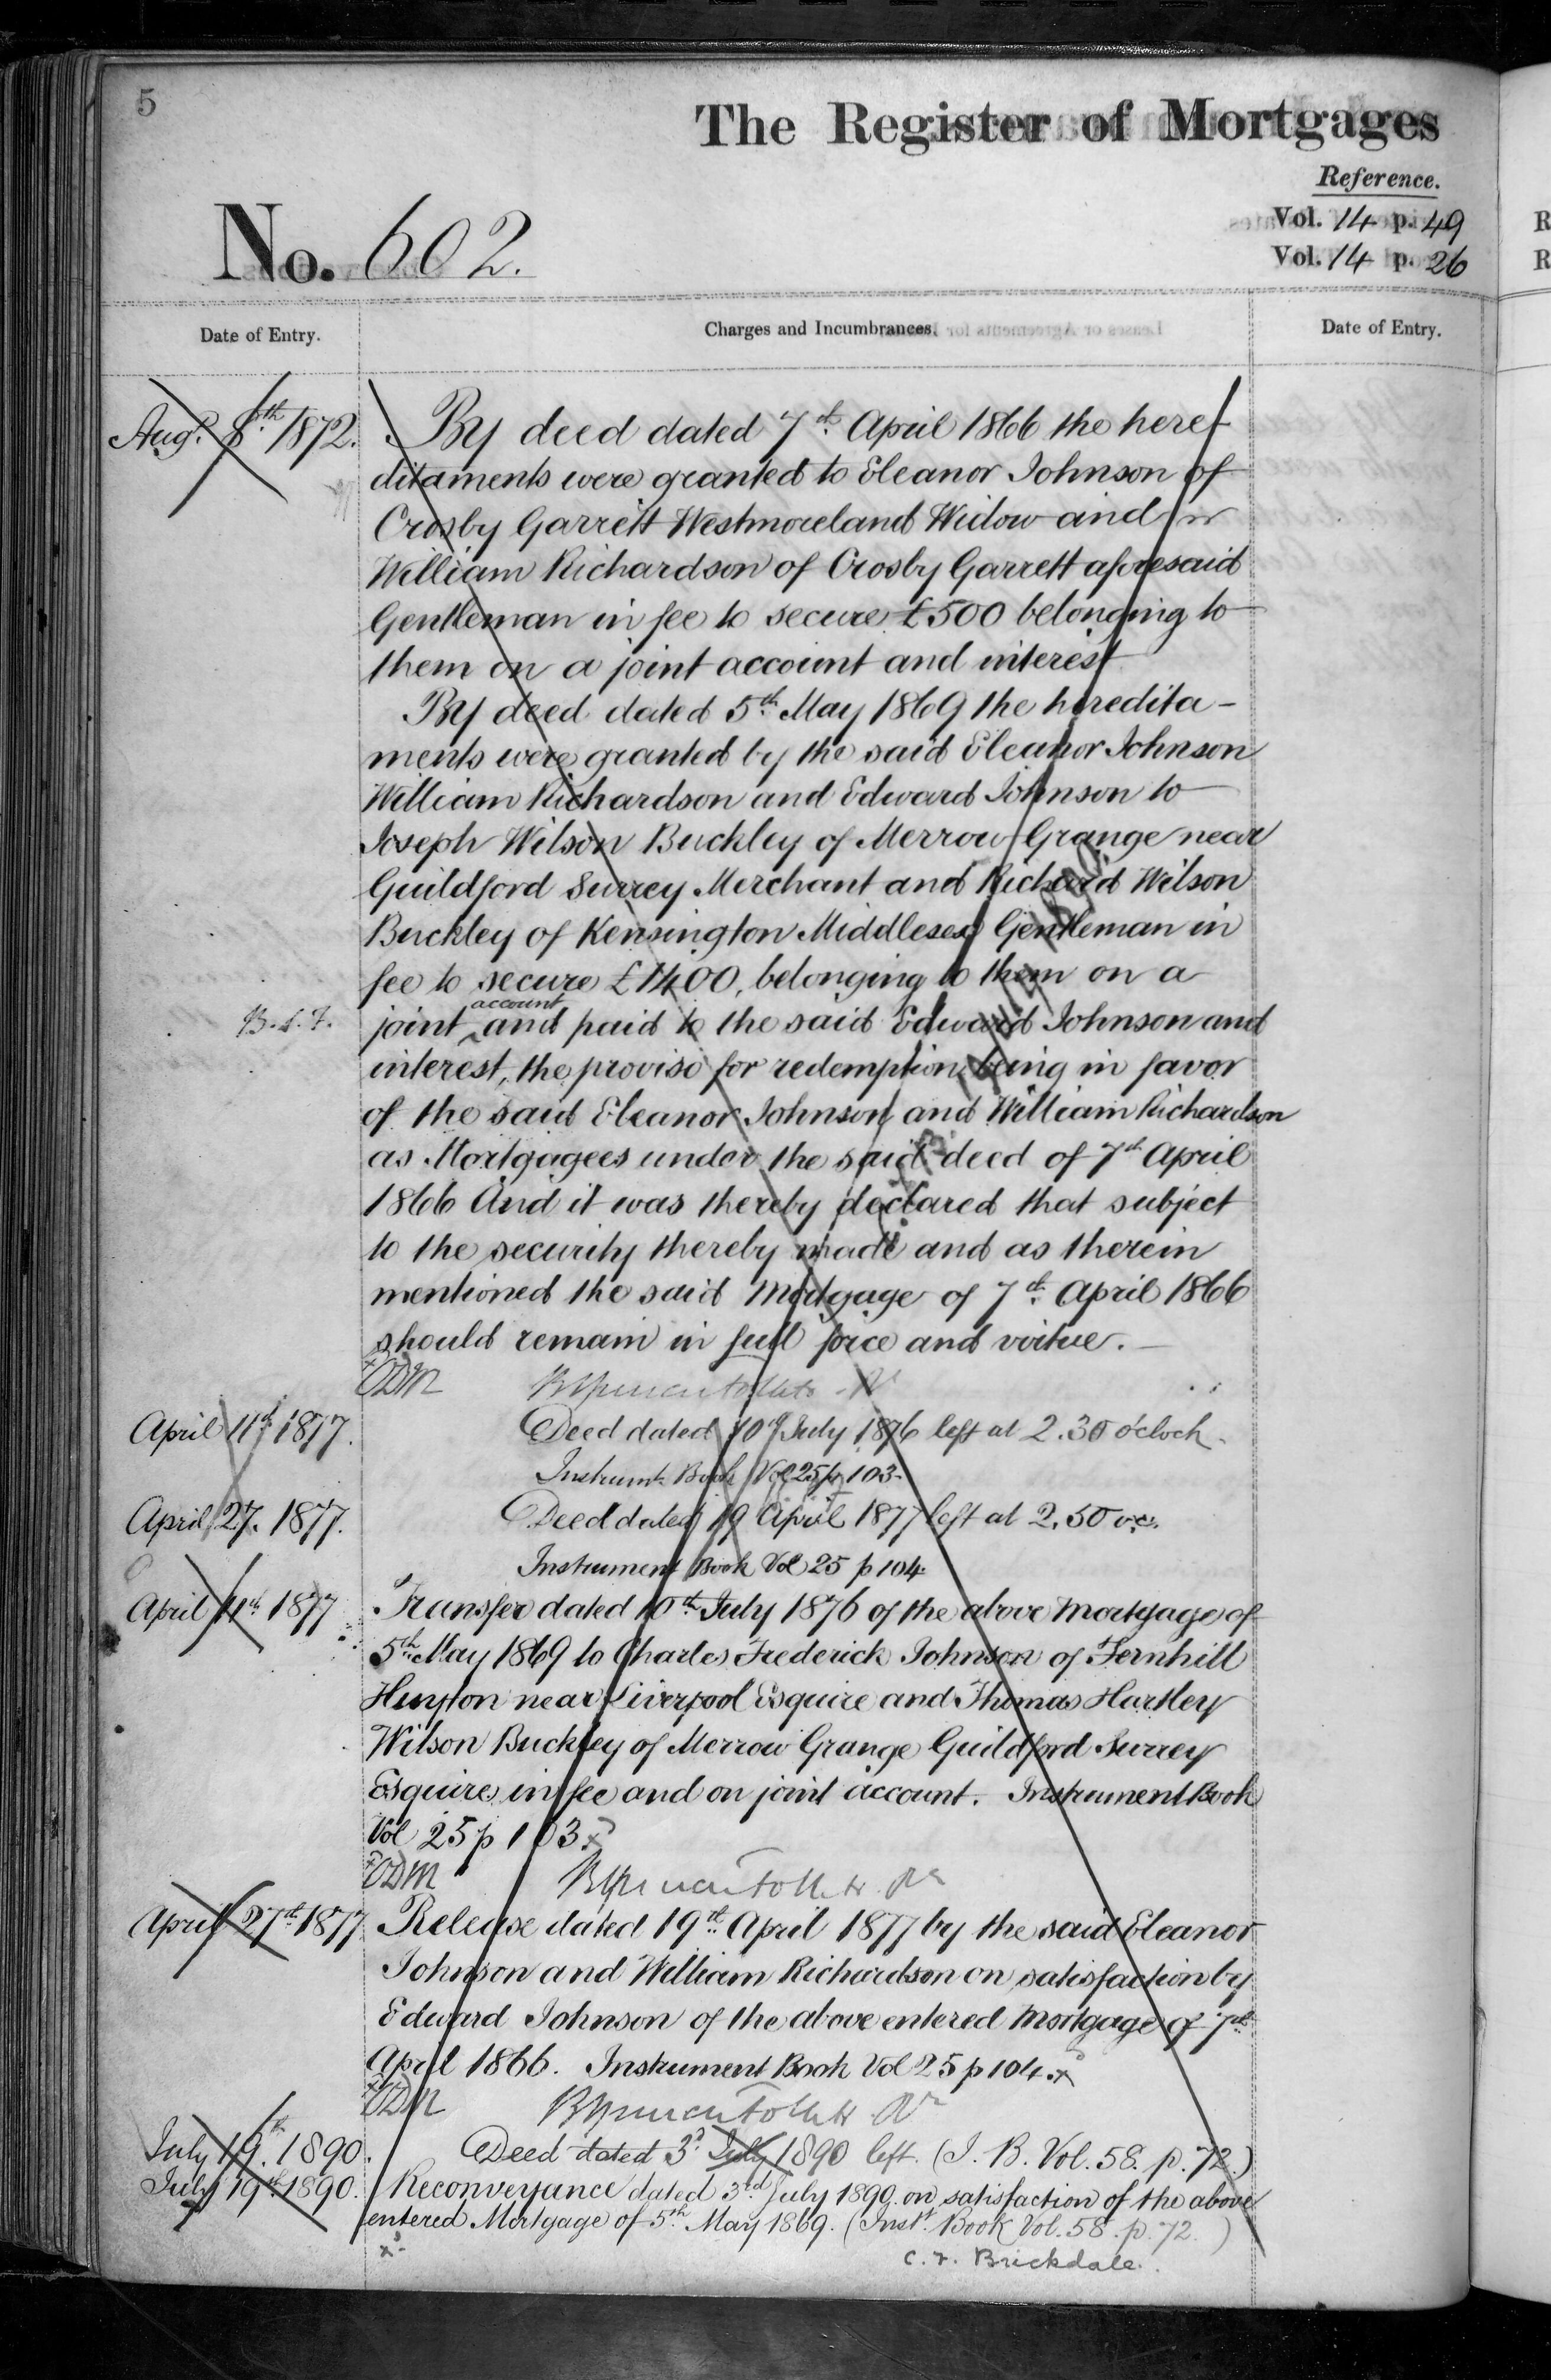 5
The Register of Mortgages
Reference.
Vol. 14 p. 49
No. 602.
Vol. 14 p. 26
Date of Entry.
Charges and Incumbrances.
Date of Entry.
Aug. 8th 1872.
By deed dated 7th April 1866 the here-
ditaments were granted to Eleanor Johnson of
Crosby Garrett Westmoreland Widow and
William Richardson of Crosby Garrett aforesaid
Gentleman in fee to secure £500 belonging to
them on a joint account and interest
By deed dated 5th May 1869 the heredita-
ments were granted by the said Eleanor Johnson
William Richardson and Edward Johnson to
Joseph Wilson Buckley of Merrow Grange near
Guildford Surrey Merchant and Richard Wilson
Buckley of Kensington Middlesex Gentleman in
fee to secure £1400, belonging to them on a
account
joint and paid to the said Edward Johnson and
interest, the proviso for redemption being in favor
of the said Eleanor Johnson and William Richardson
as Mortgagees under the said deed of 7th April
1866 And it was thereby declared that subject
to the security thereby made and as therein
mentioned the said Mortgage of 7th April 1866
should remain in full force and virtue.
April 11th 1877.
Deed dated 10th July 1876 left at 2.30 o'clock.
Instrumt. Book Vol 25 p 103.
April 27. 1877.
Deed dated 19 April 1877 left at 2.50
Instrument Book Vol 25 p 104
April 11th 1877
Transfer dated 10th July 1876 of the above Mortgage of
5th May 1869 to Charles Frederick Johnson of Fernhill
Huyton near Liverpool Esquire and Thomas Hartley
Wilson Buckley of Merrow Grange Guildford Surrey
Esquire in fee and on joint account. Instrument Book
Vol 25 p 103
April 27th 1877
Release dated 19th April 1877 by the said Eleanor
Johnson and William Richardson on satisfaction by
Edward Johnson of the above entered Mortgage of 7th
April 1866. Instrument Book Vol 25 p 104.
July 19th 1890.
Deed dated 3d July 1890 left. (I. B. Vol. 58. p. 72.)
July 19th 1890.
Reconveyance dated 3rd July 1890. on satisfaction of the above
entered Mortgage of 5th May 1869. (Inst. Book Vol. 58. p. 72.)
C. F. Brickdale.